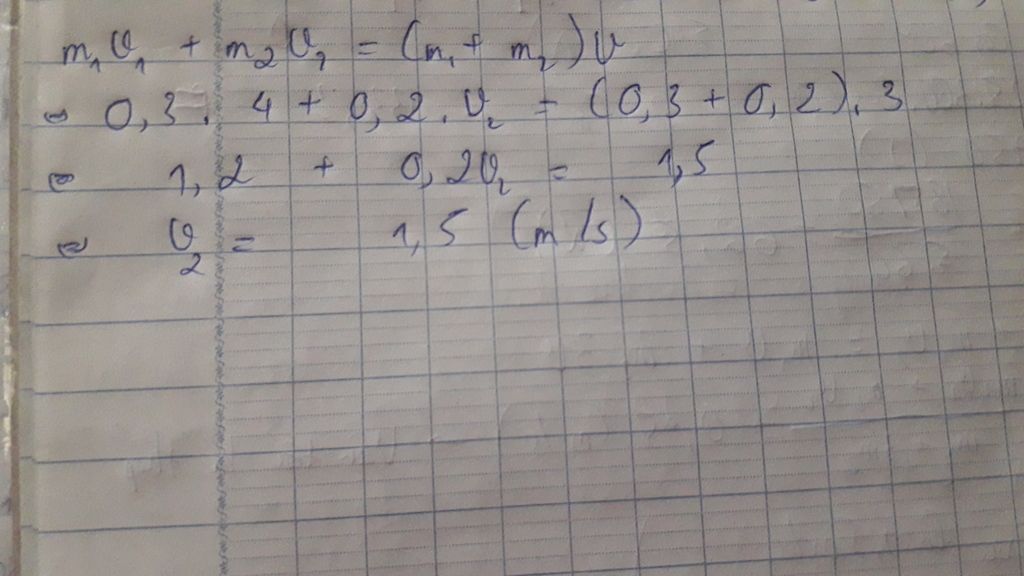 m₁v₁ + m₂v₂ = (m₁ + m₂)v
⇔ 0,3 . 4 + 0,2 . v₂ = (0,3 + 0,2) . 3
⇔ 1,2 + 0,2v₂ = 1,5
⇔ v₂ = 1,5 (m/s)